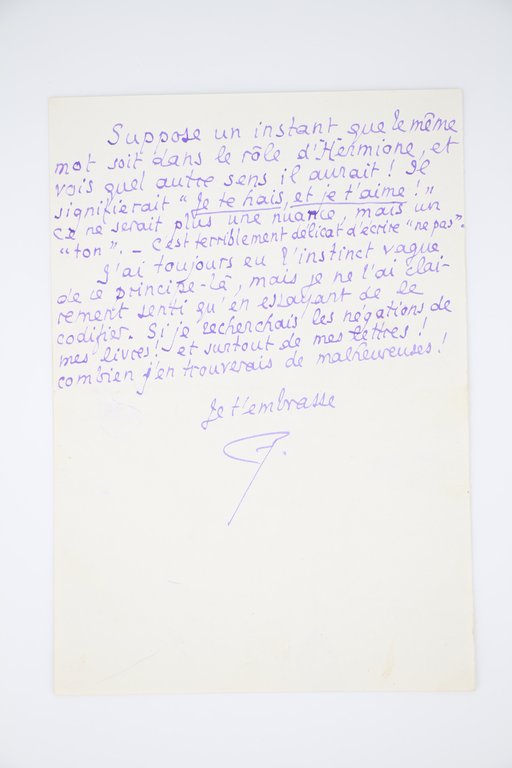 Suppose un instant que le même
mot soit dans le rôle d'Hermione, et
vois quel autre sens il aurait ! Il
signifierait "Je te hais, et je t'aime !"
ce ne serait plus une nuance, mais un
"ton". – C'est terriblement délicat d'écrire "ne pas".
J'ai toujours eu l'instinct vague
de ce principe-là, mais je ne l'ai clai-
rement senti qu'en essayant de le
codifier. Si je recherchais les négations de
mes livres ! et surtout de mes lettres !
combien j'en trouverais de malheureuses !
Je t'embrasse